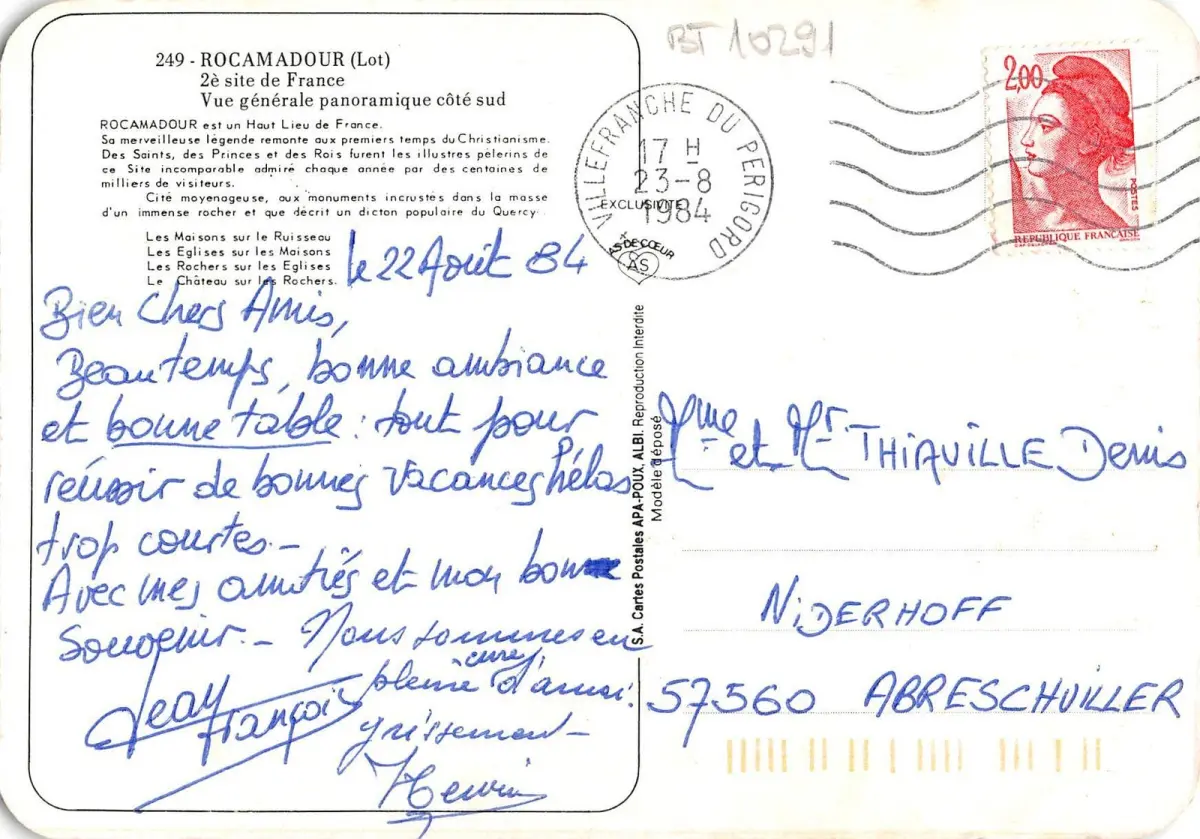 BT 10291
249 - ROCAMADOUR (Lot)
2è site de France
Vue générale panoramique côté sud
ROCAMADOUR est un Haut Lieu de France.
Sa merveilleuse légende remonte aux premiers temps du Christianisme.
Des Saints, des Princes et des Rois furent les illustres pèlerins de
ce Site incomparable admiré chaque année par des centaines de
milliers de visiteurs.
Cité moyenageuse, aux monuments incrustés dans la masse
d'un immense rocher et que décrit un dicton populaire du Quercy.
Les Maisons sur le Ruisseau
Les Eglises sur les Maisons
Les Rochers sur les Eglises
Le Château sur les Rochers.
le 22 Août 84
Bien Chers Amis,
Beau temps, bonne ambiance
et bonne table : tout pour
réussir de bonnes vacances hélas
trop courtes. -
Avec mes amitiés et mon bon
Souvenir. - Nous sommes en
pleine cure d'amai.
grissement -
Jean
François
VILLEFRANCHE DU PERIGORD
17 H
23-8
1984
EXCLUSIVITE
AS DE CŒUR
AS
2,00
POSTES
REPUBLIQUE FRANÇAISE
S.A. Cartes Postales APA-POUX, ALBI. Reproduction Interdite
Modèle déposé
Mme et Mr. THIAVILLE Denis
NIDERHOFF
57560 ABRESCHVILLER